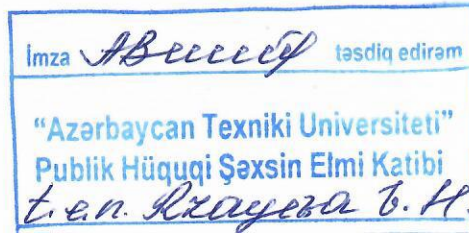 İmza təsdiq edirəm
“Azərbaycan Texniki Universiteti”
Publik Hüquqi Şəxsin Elmi Katibi
t.e.n.